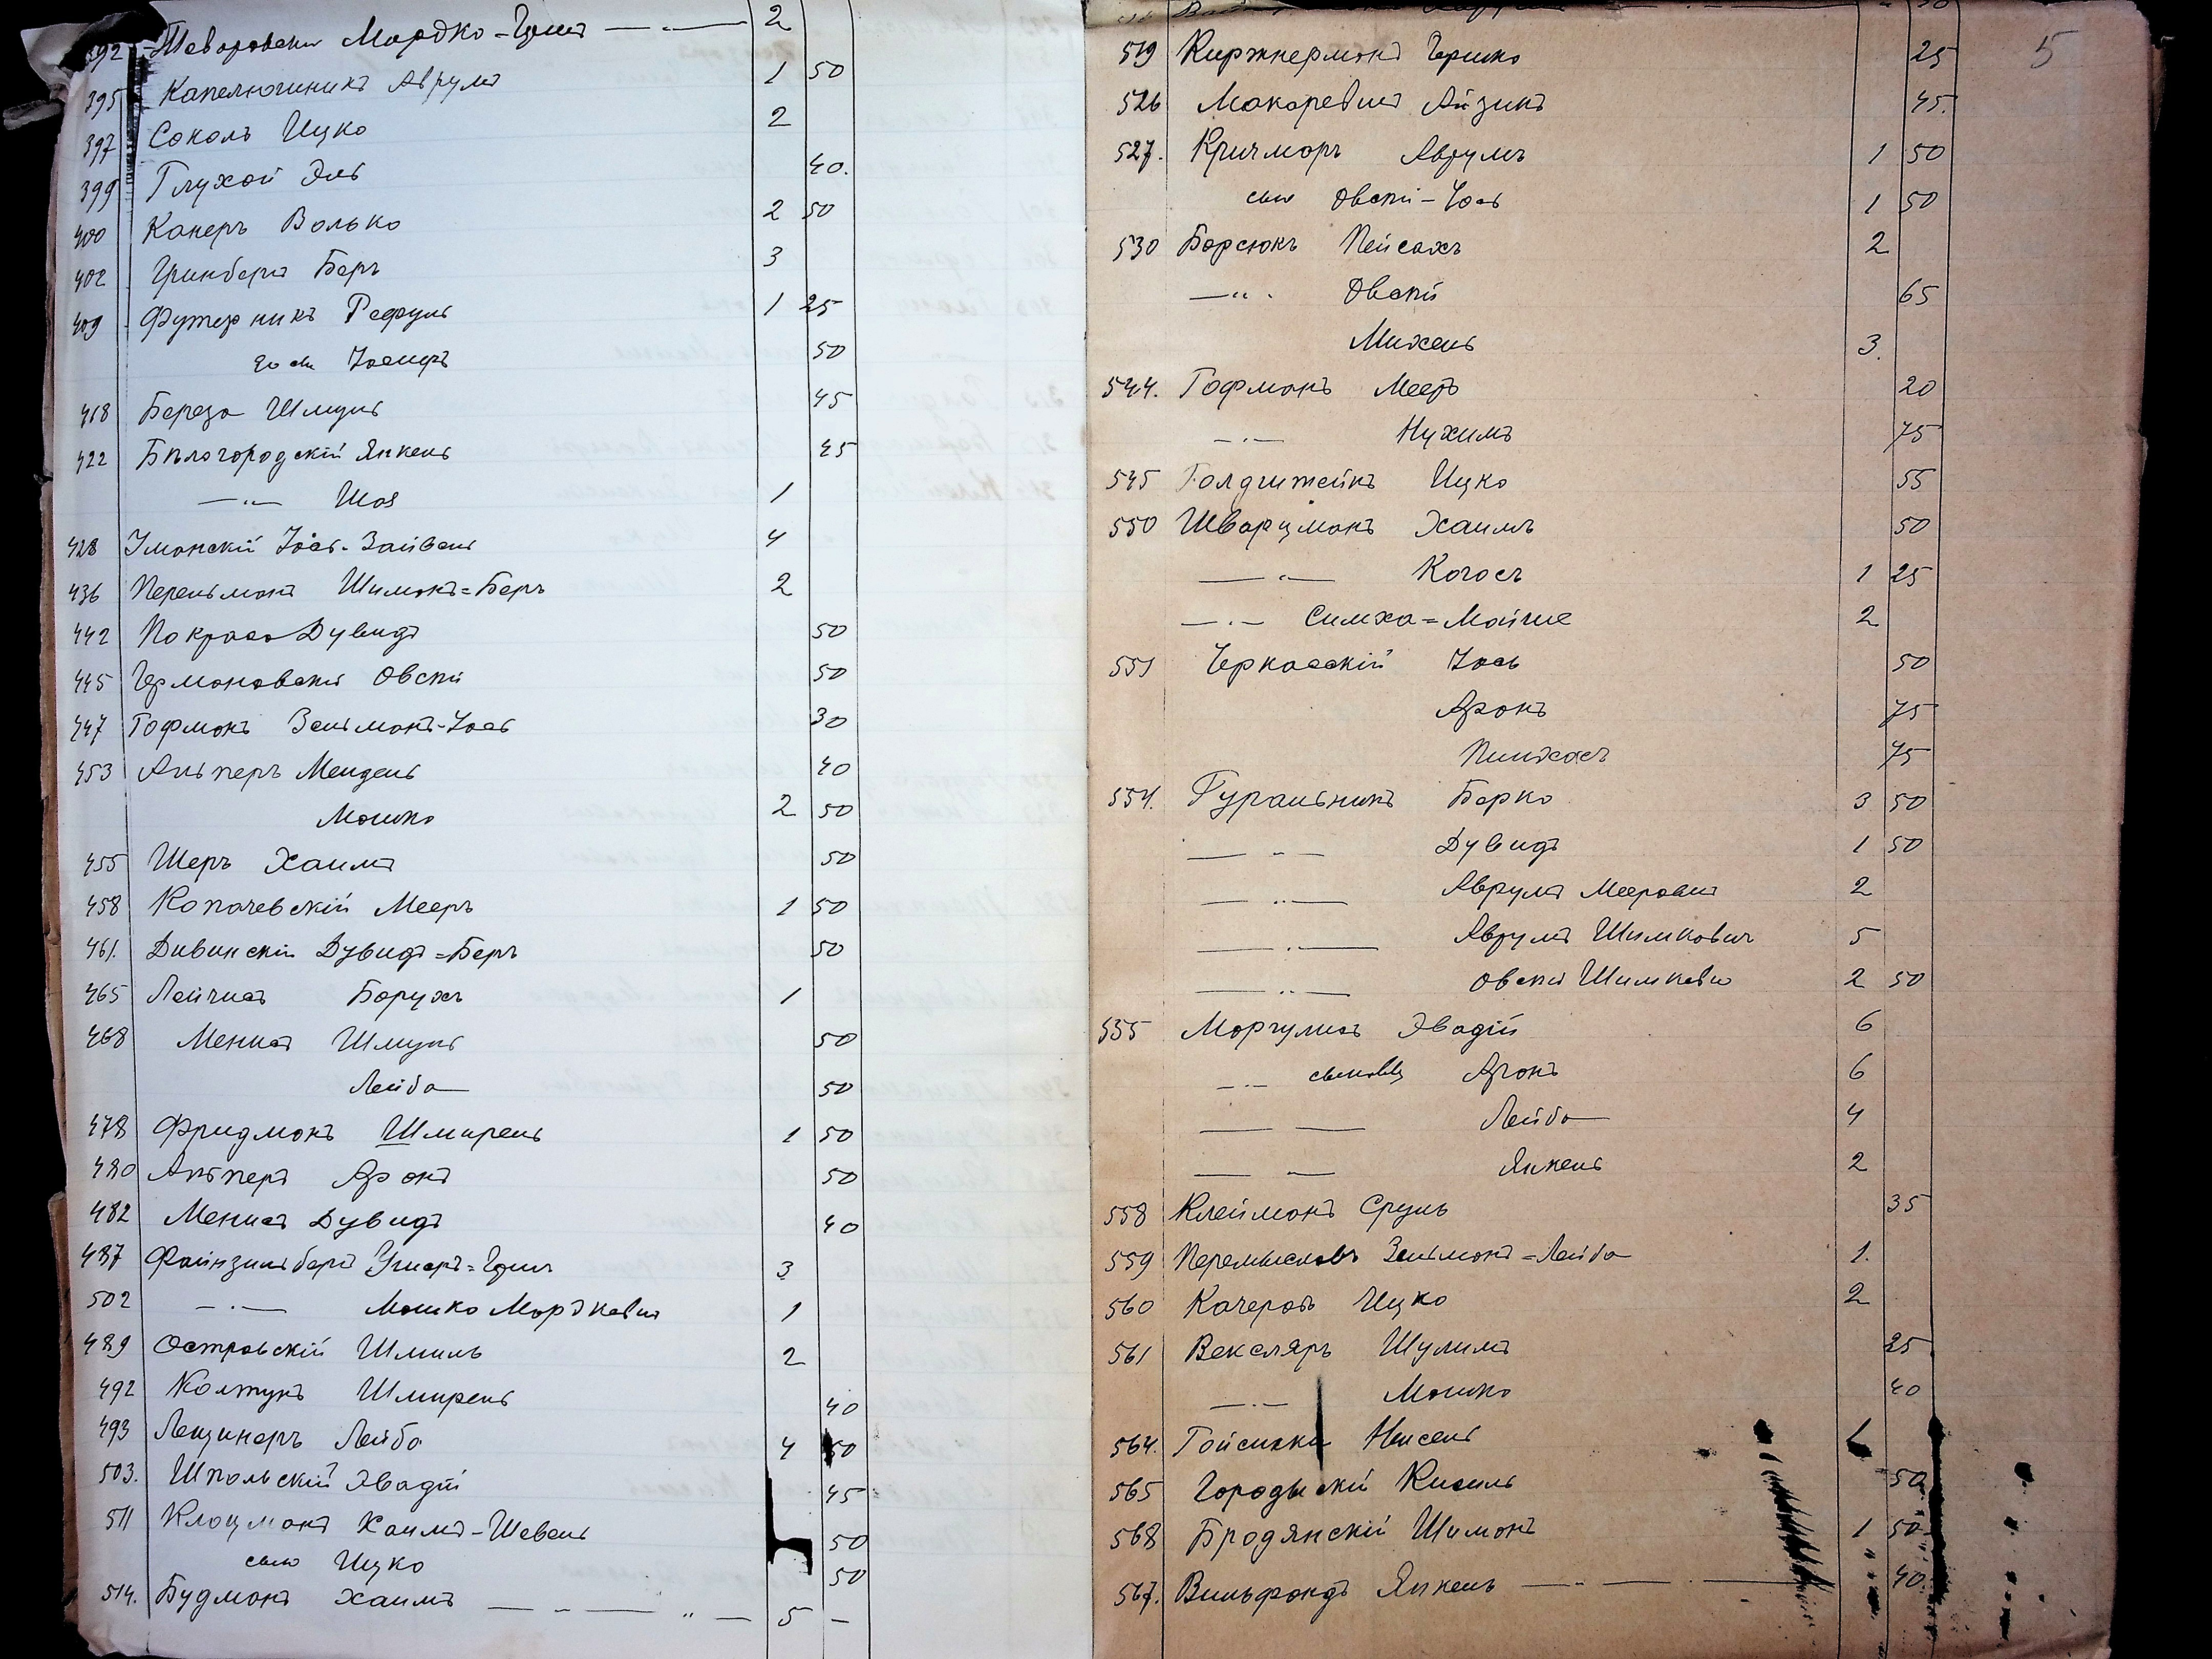 392 Теваровски Мордко-Гершъ — „ — 2
395 Капелюшникъ Аврумъ 1 50
397 Соколъ Ицко 2
399 Глухой Эль 40.
400 Канеръ Волько 2 50
402 Гринбергъ Беръ 3
409 Футерникъ Рафуль 1 25
его сынъ Іосифъ 50
418 Береза Шмуль 45
422 Бѣлогородскій Янкель 45
— „ — Шая 1
428 Уманскій Іось-Зайвель 4
436 Перельманъ Шимонъ=Беръ 2
442 Покраса Дувидъ 50
445 Германовскій Овсѣй 50
447 Гофманъ Зельманъ-Іось 30
453 Альперъ Мендель 40
Мошко 2 50
455 Шеръ Хаимъ 50
458 Копачевскій Мееръ 1 50
461. Дивинскій Дувидъ=Беръ 50
465 Лейчисъ Борухъ 1
468 Менисъ Шмуль 50
Лейба 50
478 Фридманъ Шмирель 1 50
480 Альперъ Аронъ 50
482 Менисъ Дувидъ 40
487 Файнзильбергъ Ушеръ=Гершъ 3
502 — „ — Мошко Мордковичъ 1
489 Островскій Шмиль 2
492 Колтунъ Шмирель 40
493 Лещинеръ Лейба 4 50
503. Шпольскій Эвадій 45
511 Клоцманъ Хаимъ-Шевель 50
сынъ Ицко 50
514. Будманъ Хаимъ — „ — „ — 5 —
5
519 Киржнерманъ Гершко 25
526 Макаревичъ Айзикъ 45.
527. Кричмаръ Аврумъ 1 50
сынъ Овсѣй-Іось 1 50
530 Борсюкъ Пейсахъ 2
— „ . Овсѣй 65
Михель 3.
544. Гофманъ Мееръ 20
— „ — Нухимъ 75
545 Голдштейнъ Ицко 55
550 Шварцманъ Хаимъ 50
— „ — Когосъ 1 25
— „ — Симха=Мойше 2
551 Черкасскій Іось 50
Аронъ 75
Пинхасъ 75
554. Гуральникъ Берко 3 50
— „ — Дувидъ 1 50
— „ — Аврумъ Мееровичъ 2
— „ — Аврумъ Шимковичъ 5
— „ — Овсѣй Шимковичъ 2 50
555 Моргулисъ Эвадій 6
— „ — сыновья Аронъ 6
— — Лейба 4
— — Янкель 2
558 Клейманъ Сруль 35
559 Перемысловъ Зельманъ=Лейба 1.
560 Качеровъ Ицко 2
561 Векслярь Шулимъ 25
— „ — Мошко 40
564. Гойсинки Нисель 1
565 Городыскій Кисиль 50
568 Бродянскій Шимонъ 1 50
567. Вильфондъ Янкель — „ — 40